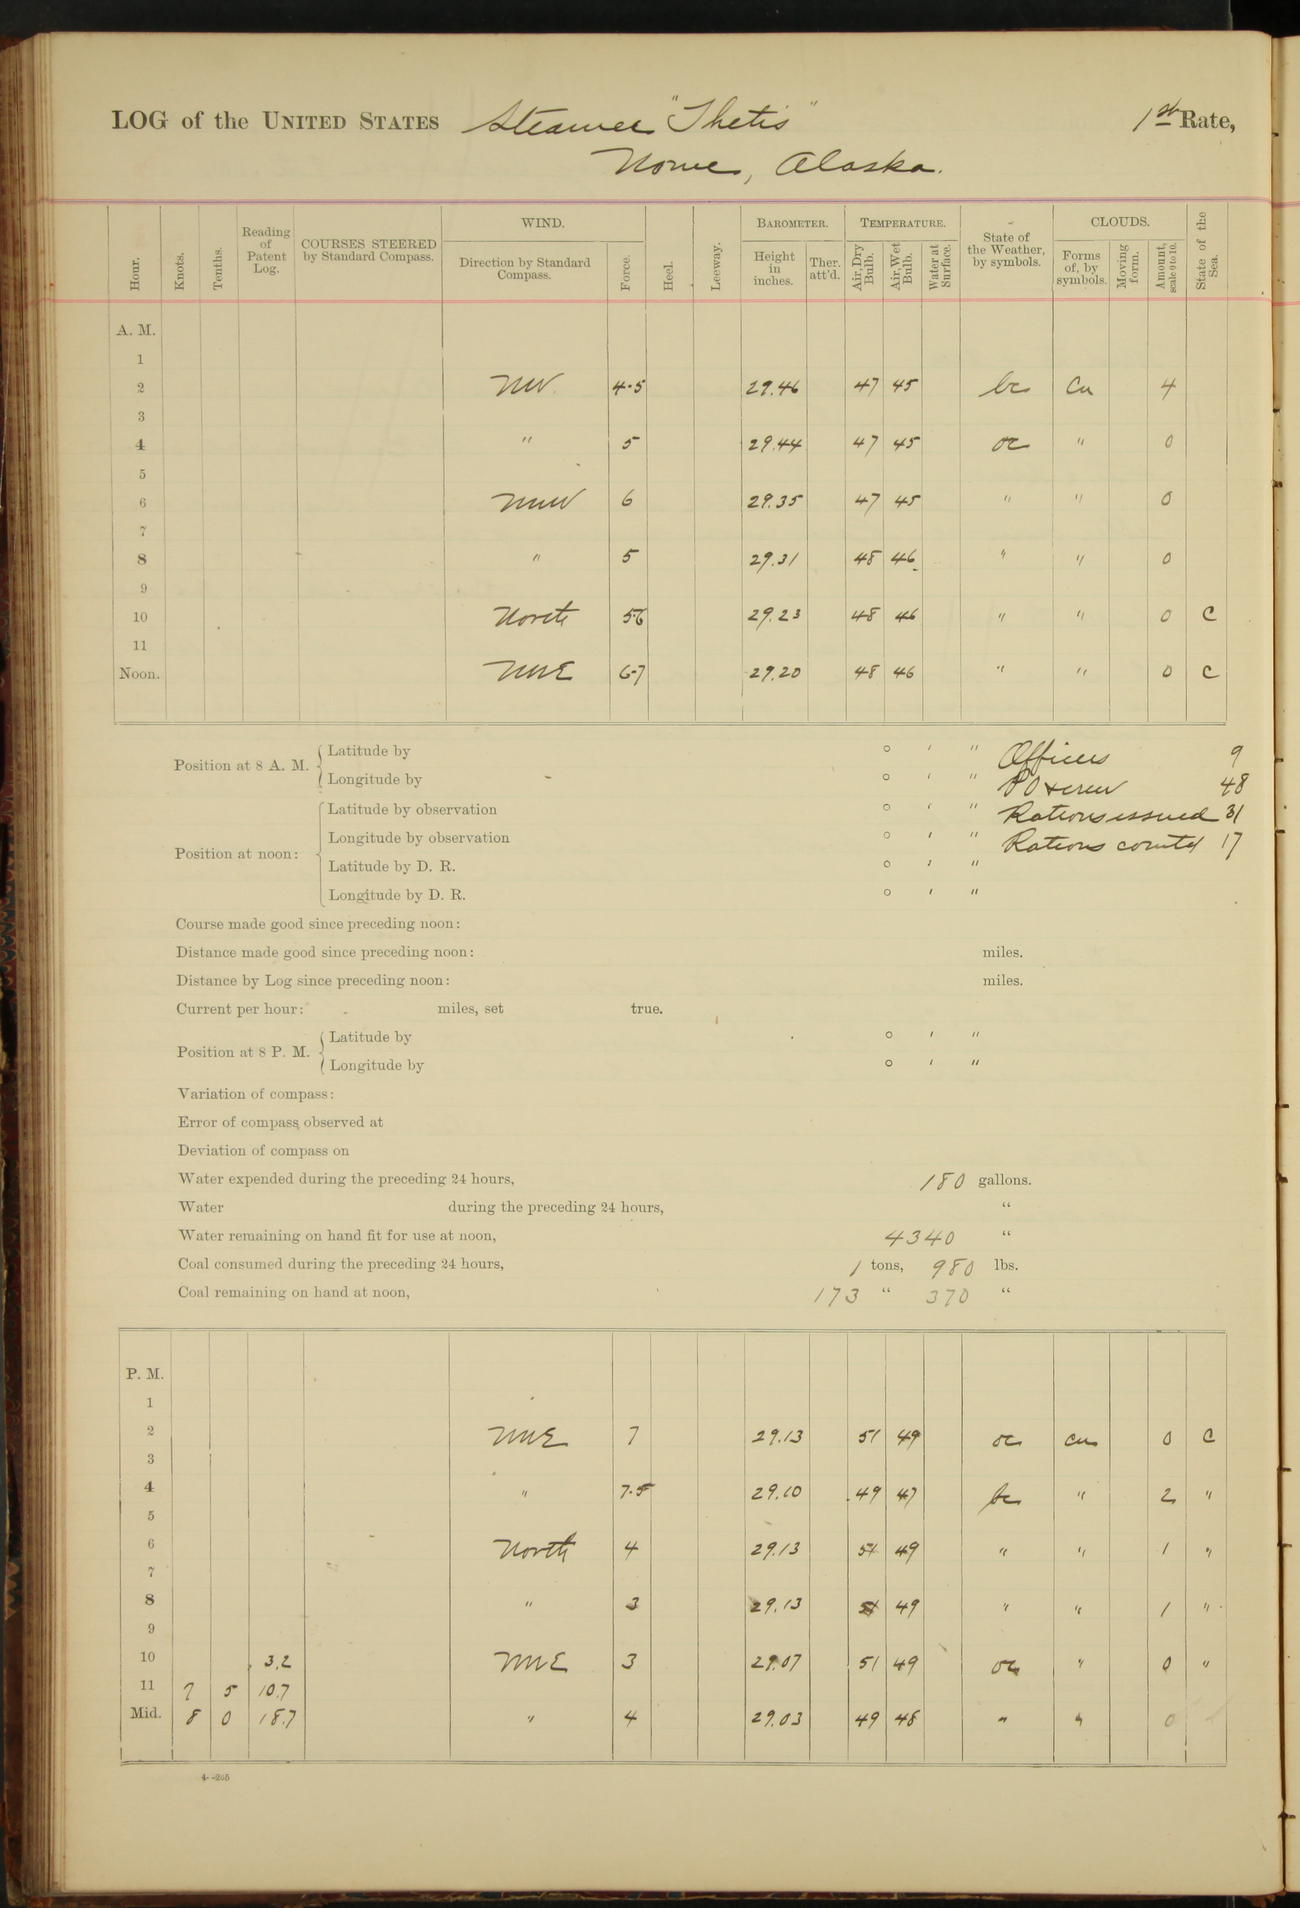 LOG of the UNITED STATES Steamer "Thetis" 1st Rate,
Nome, Alaska.
Hour. Knots. Tenths. Reading of Patent Log. COURSES STEERED by Standard Compass. WIND. Direction by Standard Compass. Force. Heel. Leeway. BAROMETER. Height in inches. Ther. att'd. TEMPERATURE. Air, Dry Bulb. Air, Wet Bulb. Water at Surface. State of the Weather, by symbols. CLOUDS. Forms of, by symbols. Moving form. Amount, scale 0 to 10. State of the Sea.
A. M.
1
2 NW 4-5 29.46 47 45 bc Cu 4
3
4 " 5 29.44 47 45 oc " 0
5
6 NNW 6 29.35 47 45 " " 0
7
8 " 5 29.31 48 46 " " 0
9
10 North 5-6 29.23 48 46 " " 0 C
11
Noon. NNE 6-7 29.20 48 46 " " 0 C
Position at 8 A. M. Latitude by ° ′ ″ Officers 9
Longitude by ° ′ ″ PO & crew 48
Position at noon: Latitude by observation ° ′ ″ Rations issued 31
Longitude by observation ° ′ ″ Rations comtd 17
Latitude by D. R. ° ′ ″
Longitude by D. R. ° ′ ″
Course made good since preceding noon:
Distance made good since preceding noon: miles.
Distance by Log since preceding noon: miles.
Current per hour: miles, set true.
Position at 8 P. M. Latitude by ° ′ ″
Longitude by ° ′ ″
Variation of compass:
Error of compass observed at
Deviation of compass on
Water expended during the preceding 24 hours, 180 gallons.
Water during the preceding 24 hours, "
Water remaining on hand fit for use at noon, 4340 "
Coal consumed during the preceding 24 hours, 1 tons, 980 lbs.
Coal remaining on hand at noon, 173 " 370 "
P. M.
1
2 NNE 7 29.13 51 49 oc cu 0 C
3
4 " 7-5 29.10 49 47 bc " 2 "
5
6 North 4 29.13 51 49 " " 1 "
7
8 " 3 29.13 51 49 " " 1 "
9
10 3.2 NNE 3 29.07 51 49 oc " 0 "
11 7 5 10.7
Mid. 8 0 18.7 " 4 29.03 49 48 " " 0
4--265